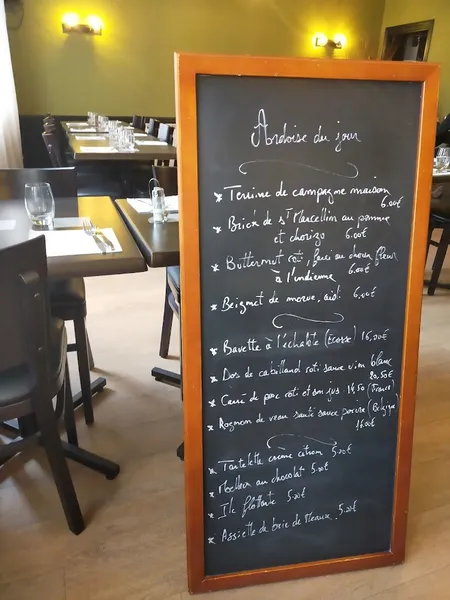 Ardoise du jour
* Terrine de campagne maison
6.00€
* Brick de St Marcellin aux pomme
et chorizo 6.00€
* Butternut roti, farci au choux fleur
à l'indienne 6.00€
* Beignet de morue, aïoli 6.00€
* Bavette à l'échalote (Écosse) 16,00€
* Dos de cabillaud roti sauce vin blanc
20.50€
* Carré de porc roti et son jus (France)
* Rognon de veau sauté sauce (Belgique)
16.00€
* Tartelette crème citron 5.00€
* Moelleux au chocolat 5.00€
* Ile flottante 5.00€
* Assiette de brie de Meaux 5.00€